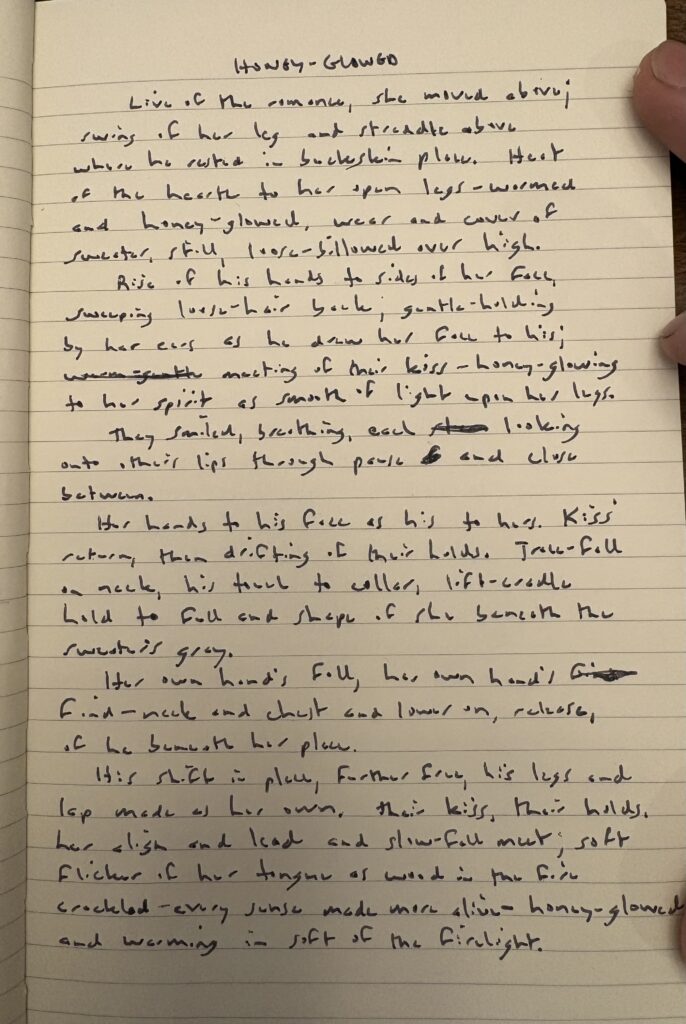 HONEY-GLOWED
Live of the romance, she moved above;
swing of her leg and straddle above
where he rested in buckskin place. Heat
of the hearth to her open legs-warmed
and honey-glowed, wear and cover of
sweater, still, loose-billowed over thigh.
Rise of his hands to sides of her face,
sweeping loose-hair back; gentle-holding
by her ears as he drew her face to his;
meeting of their kiss-honey-glowing
to her spirit as smooth of light upon her legs.
They smiled, breathing, each looking
onto other's lips through pause and close
between.
Her hands to his face as his to hers. Kiss'
return, then drifting of their holds. Trace-fall
on neck, his touch to collar, lift-cradle
hold to full and shape of she beneath the
sweater's gray.
Her own hand's fall, her own hand's
find-neck and chest and lower on, release,
of he beneath her place.
His shift in place, further free, his legs and
lap made as her own. Their kiss, their holds.
her align and lead and slow-fall meet; soft
flicker of her tongue as wood in the fire
crackled-every sense made more alive-honey-glowed
and warming in soft of the firelight.